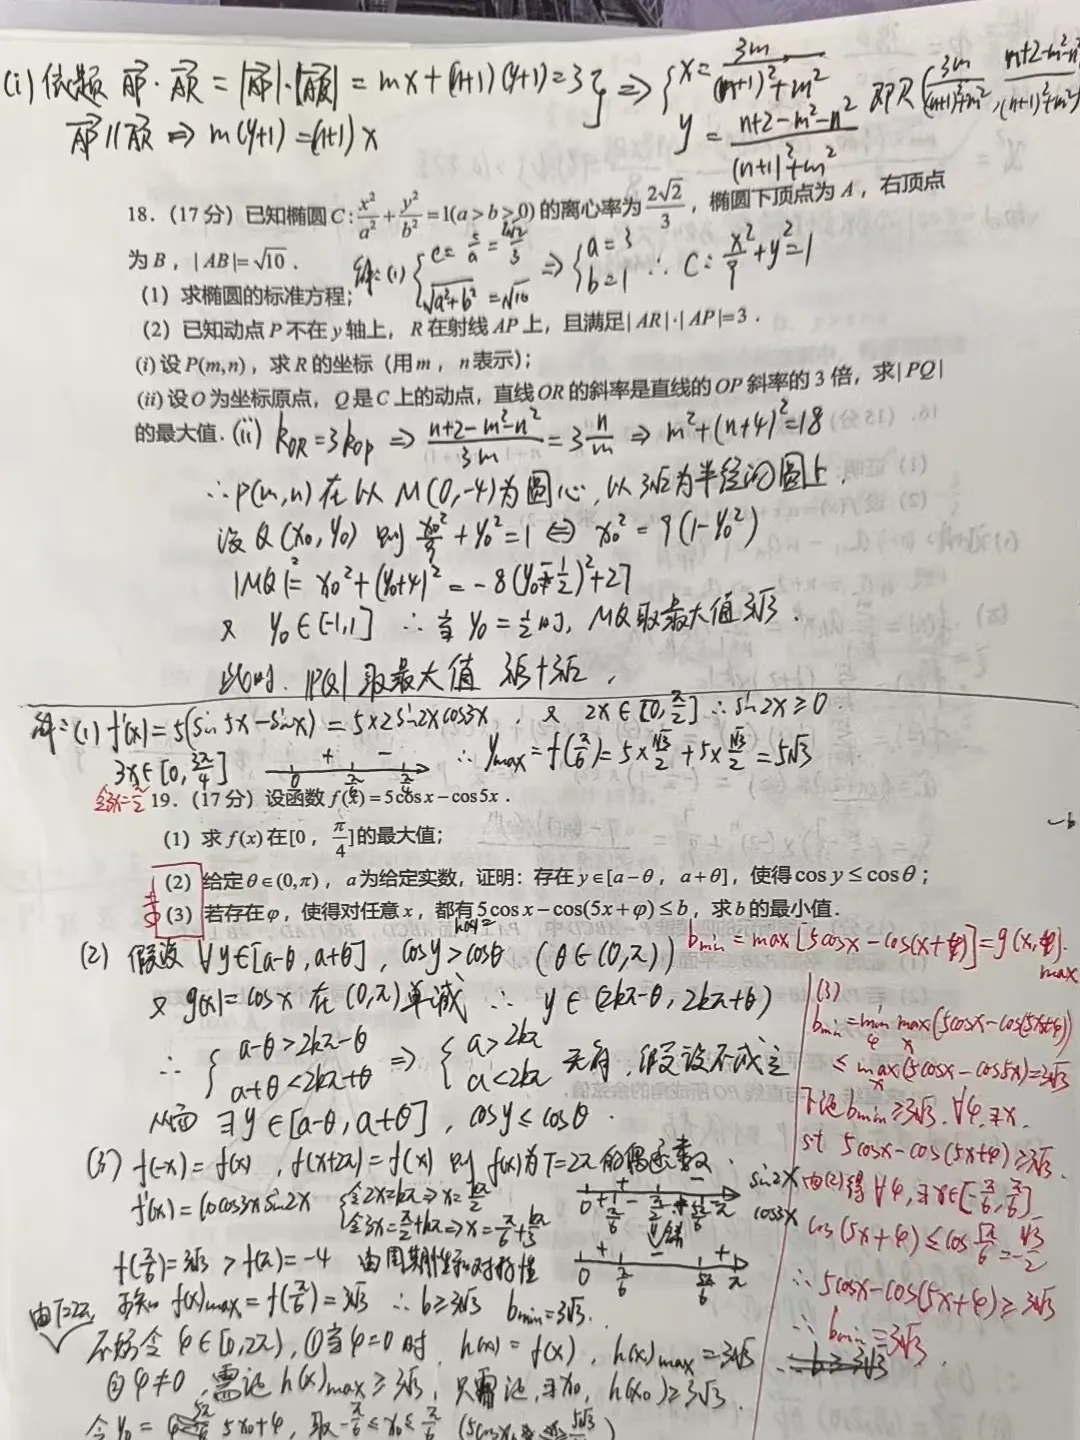 (i) 依题 AP·AR = |AP|·|AR| = mx+(n+1)(y+1)=3 } ⇒ { x= 3m/((n+1)²+m²) 即R (3m/((n+1)²+m²), (n+2-m²-n²)/((n+1)²+m²)
AP∥AR ⇒ m(y+1)=(n+1)x y= (n+2-m²-n²)/((n+1)²+m²)
18.(17分) 已知椭圆C: x²/a²+y²/b²=1(a>b>0) 的离心率为 2√2/3, 椭圆下顶点为 A, 右顶点
为 B, |AB|=√10.
解:(1) { e= c/a = 2√2/3 √(a²+b²) =√10 ⇒ { a=3 b=1 ∴ C: x²/9+y²=1
(1) 求椭圆的标准方程;
(2) 已知动点 P 不在 y 轴上, R 在射线 AP 上, 且满足|AR|·|AP|=3.
(i) 设 P(m,n), 求 R 的坐标 (用 m, n 表示);
(ii) 设 O 为坐标原点, Q 是 C 上的动点, 直线 OR 的斜率是直线的 OP 斜率的 3 倍, 求|PQ|
的最大值.
(ii) kOR=3kOP ⇒ (n+2-m²-n²)/3m =3 n/m ⇒ m²+(n+4)²=18
∴P(m,n) 在以 M(0,-4)为圆心, 以3√2为半径的圆上.
设Q(x₀,y₀) 则 x₀²/9+y₀²=1 ⇔ x₀²=9(1-y₀²)
|MQ|²= x₀²+(y₀+4)²=-8(y₀-1/2)²+27
又 y₀∈[-1,1] ∴ 当 y₀=1/2时, MQ取最大值3√3.
此时. |PQ|取最大值 3√3+3√2.
解:(1) f'(x)=5(sin5x-sinx)=5×2sin2xcos3x. 又 2x∈[0,π/2] ∴ sin2x≥0
3x∈[0,3π/4] + - 0 π/6 π/4 ∴ ymax=f(π/6)=5×√3/2+5×√3/2=5√3
令3x=π/2
19.(17分) 设函数 f(x)=5cosx-cos5x.
(1) 求 f(x) 在[0, π/4]的最大值;
(2) 给定θ∈(0,π), a为给定实数, 证明: 存在 y∈[a-θ, a+θ], 使得cosy≤cosθ;
(3) 若存在φ, 使得对任意 x, 都有5cosx-cos(5x+φ)≤b, 求 b 的最小值.
bmin=max[5cosx-cos(x+φ)]=g(x,φ)max
(2) 假设 ∀y∈[a-θ,a+θ], cosy>cosθ (θ∈(0,π))
又 g(x)=cosx 在(0,π)单减 ∴ y∈(2kπ-θ, 2kπ+θ)
∴ { a-θ>2kπ-θ a+θ<2kπ+θ ⇒ { a>2kπ a<2kπ 矛盾, 假设不成立
从而 ∃y∈[a-θ,a+θ], cosy≤cosθ.
(3) f(-x)=f(x), f(x+2π)=f(x) 则 f(x)为T=2π的偶函数.
f'(x)=10cos3xsin2x 令2x=kπ⇒x=kπ/2 令3x=π/2+kπ⇒x=π/6+kπ/3
sin2x
cos3x
f(π/6)=3√3>f(π)=-4 由周期性和对称性
0 π/6 5π/6 π
由T=2π
可知 f(x)max=f(π/6)=3√3 ∴ b≥3√3 bmin=3√3.
不妨令 φ∈[0,2π), ①当φ=0时, h(x)=f(x), h(x)max=3√3
②φ≠0, 需证 h(x)max≥3√3, 只需证, ∃x₀, h(x₀)≥3√3.
5x₀+φ, 取-π/6≤x₀≤π/6
(3)
bmin=min φ max x (5cosx-cos(5x+φ))
≤ max x (5cosx-cos5x)=3√3
下证 bmin≥3√3. ∀φ, ∃x.
st 5cosx-cos(5x+φ)≥3√3
由(2)得 ∀φ, ∃x∈[-π/6,π/6]
cos(5x+φ)≤cos5π/6=-√3/2
∴ 5cosx-cos(5x+φ)≥3√3
∴ bmin=3√3